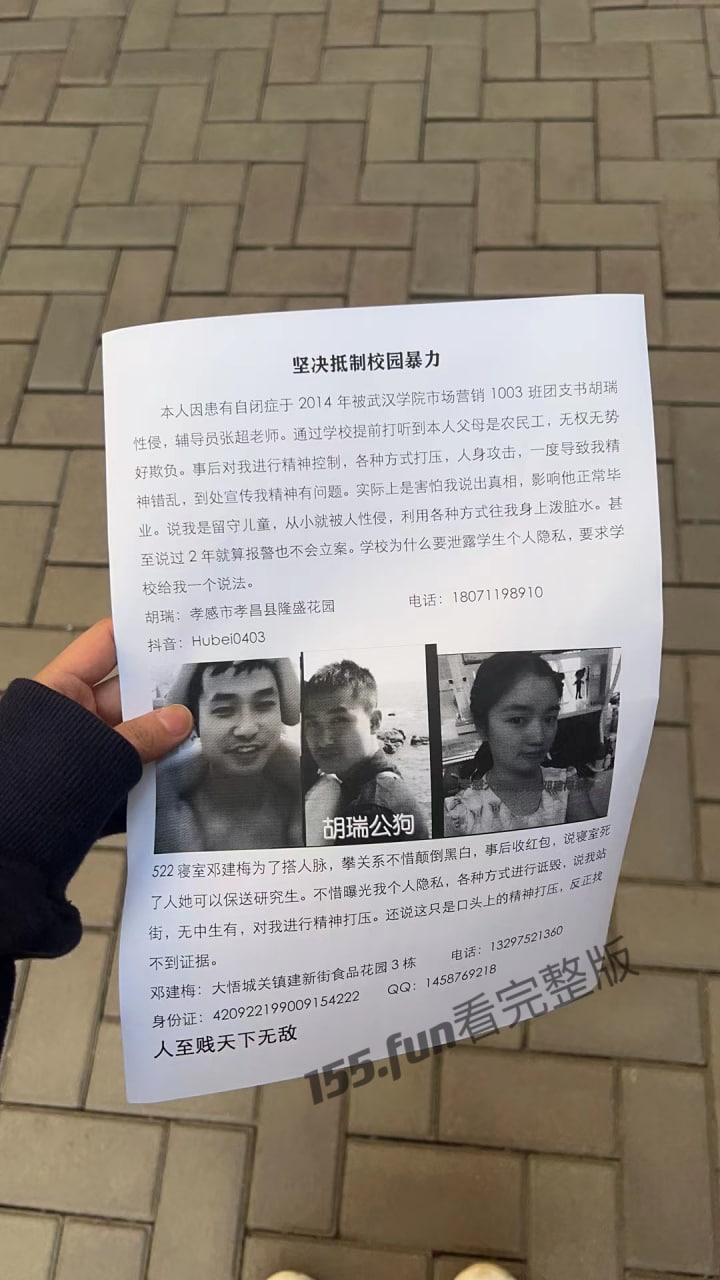 坚决抵制校园暴力
本人因患有自闭症于 2014 年被武汉学院市场营销 1003 班团支书[姓名略]
性侵，辅导员[姓名略]老师。通过学校提前打听到本人父母是农民工，无权无势
好欺负。事后对我进行精神控制，各种方式打压，人身攻击，一度导致我精
神错乱，到处宣传我精神有问题。实际上是害怕我说出真相，影响他正常毕
业。说我是留守儿童，从小就被人性侵，利用各种方式往我身上泼脏水。甚
至说过 2 年就算报警也不会立案。学校为什么要泄露学生个人隐私，要求学
校给我一个说法。
[姓名略]：[住址略] 电话：[略]
抖音：[略]
[姓名略]公狗
522 寝室[姓名略]为了搭人脉，攀关系不惜颠倒黑白，事后收红包，说寝室死
了人她可以保送研究生。不惜曝光我个人隐私，各种方式进行诋毁，说我站
街，无中生有，对我进行精神打压。还说这只是口头上的精神打压，反正找
不到证据。
[姓名略]：[住址略] 电话：[略]
身份证：[略] QQ：[略]
人至贱天下无敌
155.fun看完整版